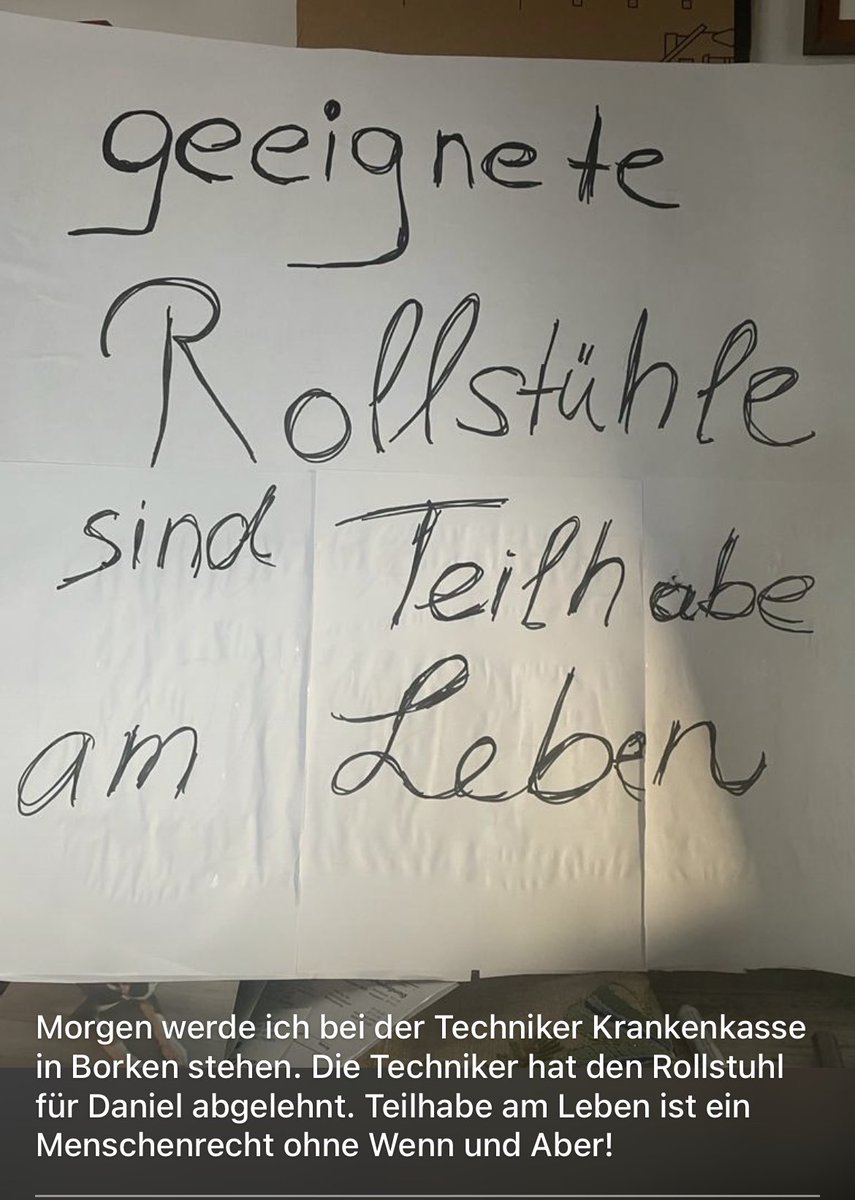 geeignete
Rollstühle
sind Teilhabe
am Leben
Morgen werde ich bei der Techniker Krankenkasse
in Borken stehen. Die Techniker hat den Rollstuhl
für Daniel abgelehnt. Teilhabe am Leben ist ein
Menschenrecht ohne Wenn und Aber!